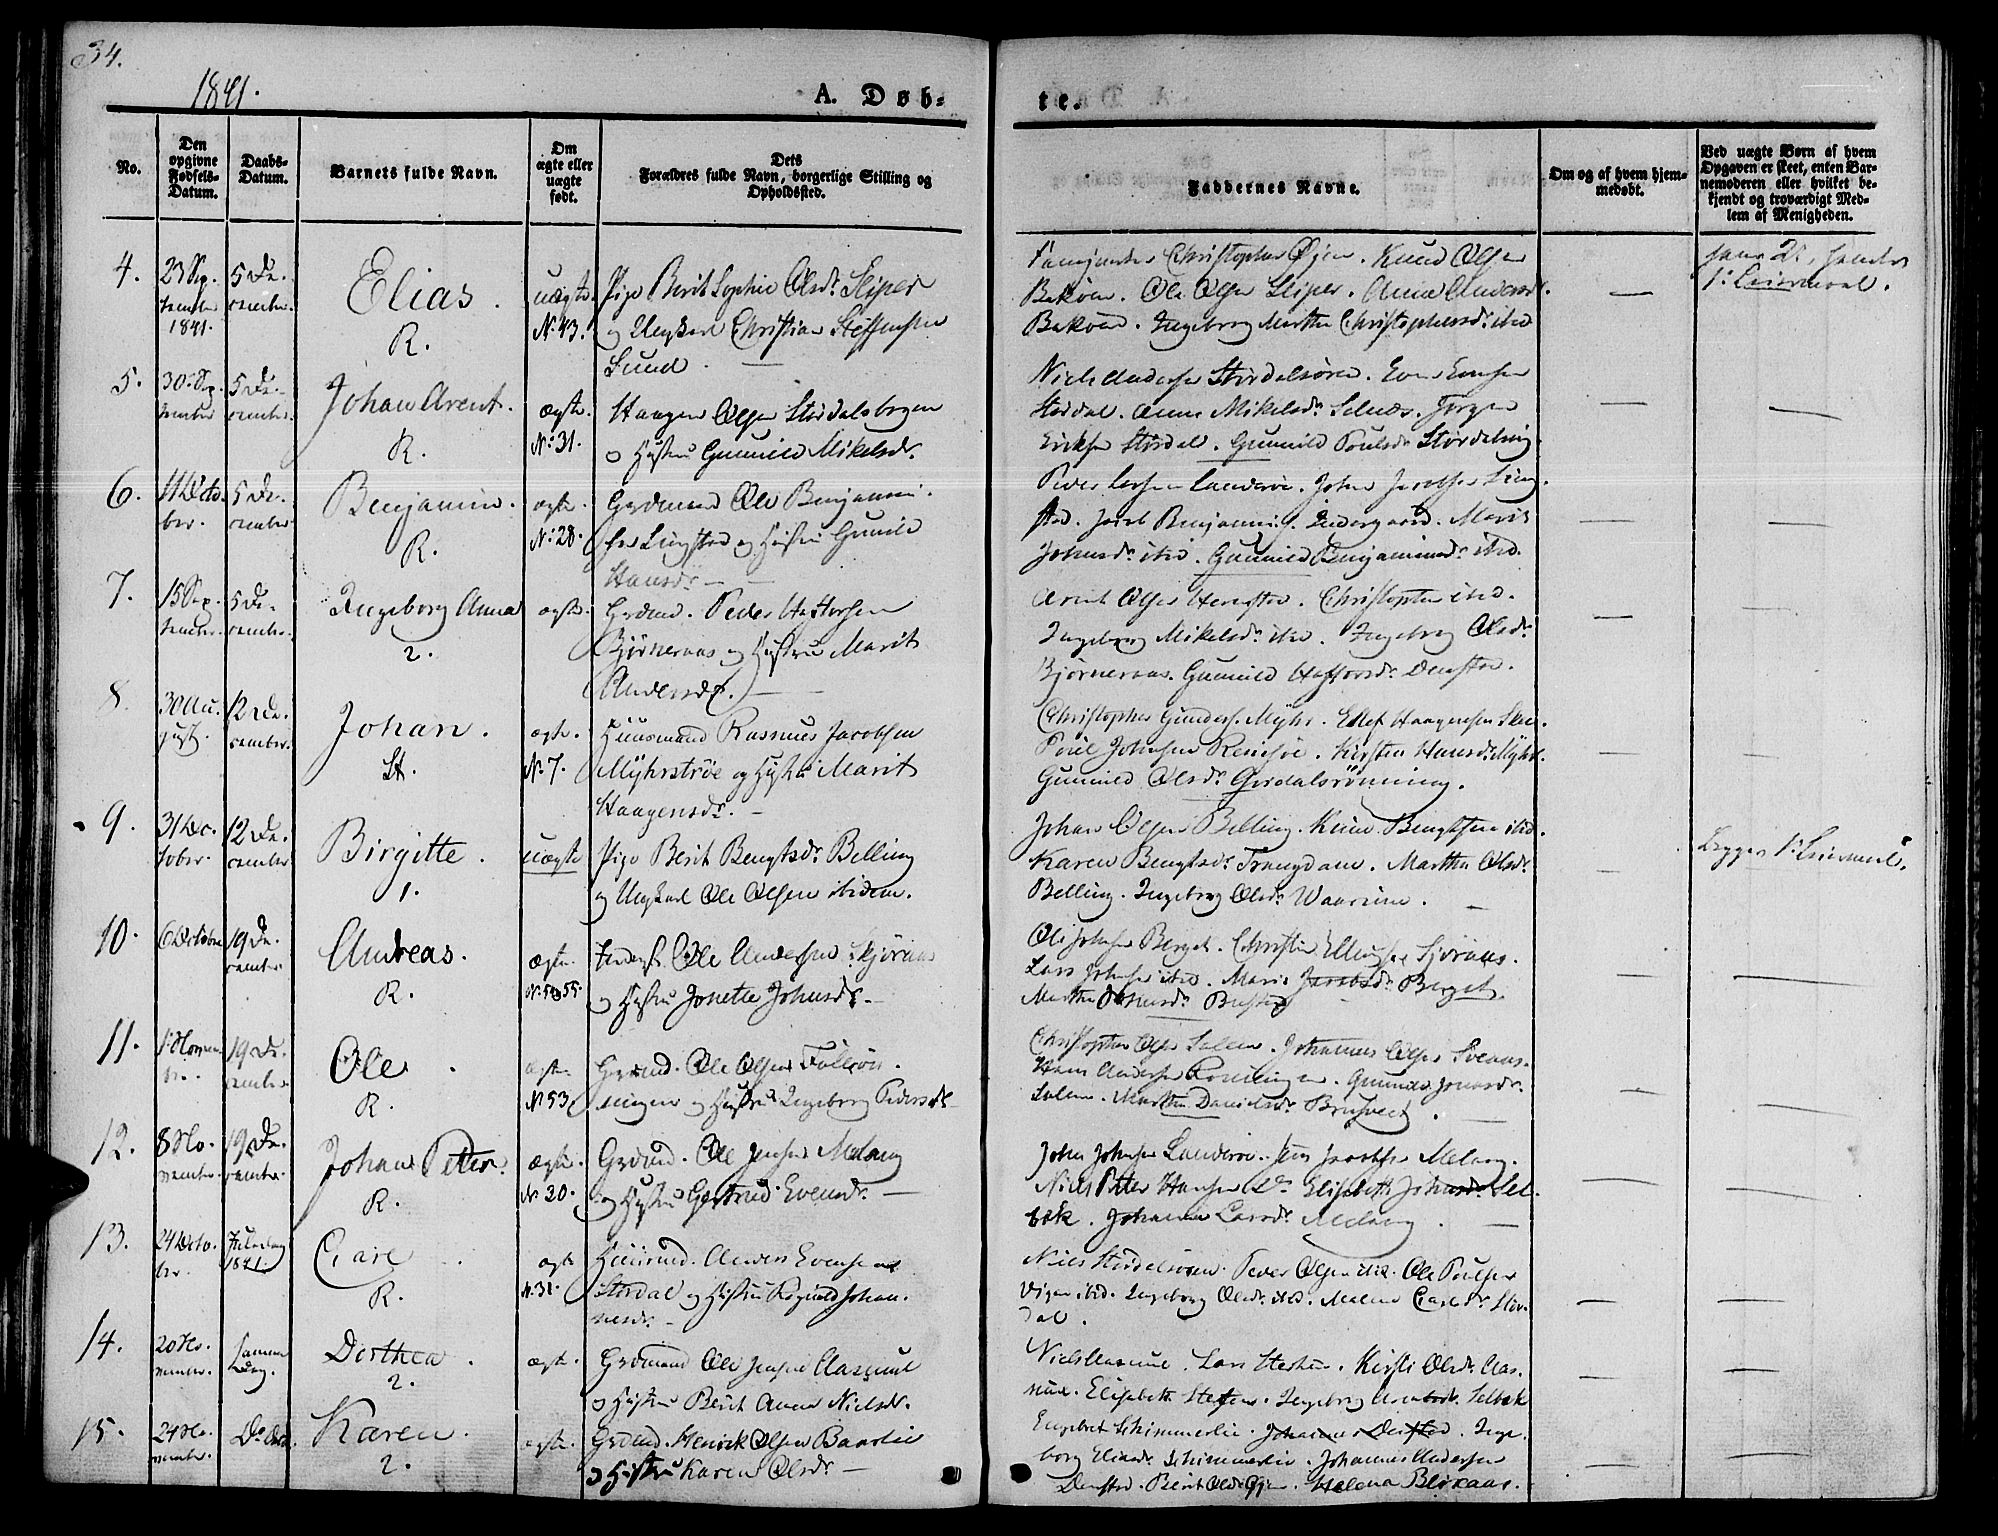 34.
1841.
A. Døb-
te.
No.
Den
opgivne
Fødsels-
Datum.
Daabs-
Datum.
Barnets fulde Navn.
Om
ægte eller
uægte
født.
Dets
Forældres fulde Navn, borgerlige Stilling og
Opholdssted.
Faddernes Navne.
Om og af hvem hjem-
medøbt.
Ved uægte Børn af hvem
Opgaven er skeet, enten Bar-
nemoderen eller hvilket be-
kjendt og troværdigt Med-
lem af Menigheden.
4.
23 Sep.
tember
1841.
5 De-
cember.
Elias.
R.
uægte.
No. 43.
Pige Berit Sophie Olsdr. Sliper
og Ungkarl Christian Steffensen
Lund.
Christopher Øjen. Knud Olsen
Bakøen. Ole Olsen Sliper. Anne Andersdr.
Bakøen. Ingeborg Martha Christophersdr. ibid
1ste Leiermaal.
5.
30 Sep.
tember
5 De-
cember.
Johan Arent.
R.
ægte.
No. 31.
Haagen Olsen Stördalsbogen
og Hustru Gunnild Mikelsdr.
Niels Andersen Stördalsören. Even Evensen
Stördal. Anne Mikelsdr. Selnæs. Jörgen
Eriksen Stördal. Gunnild Poulsdr. Stördalseng
6.
11 Octo-
ber.
5 De-
cember
Benjamin.
R.
ægte.
No. 28.
Grdmand Ole Benjamin-
sen Lingstad og Hustru Gunild
Hansdr.
Peder Larsen Landeröe. John Jacobsen Ling-
stad. Jacob Benjamins. Indergaard. Marit
Johnsdr. ibid. Gunnild Benjaminsdr. ibid.
7.
15 Sep.
tember.
5 De-
cember.
Ingeborg Anna
2.
ægte.
Grdmd. Peder Haftorsen
Björneraas og Hustru Marit
Andersdr.
Arent Olsen Herrestad. Christopher ibid.
Ingeborg Mikelsdr. ibid. Ingeborg Olsdr.
Björneraas. Gunnild Haftorsdr. Denstad.
8.
30 Au-
gust.
12 De-
cember.
Johan.
St.
ægte.
No. 7.
Huusmand Rasmus Jacobsen
Myhrströe og Hustru Marit
Haagensdr.
Christopher Gunders. Myhr. Ellef Haagensen
Poul Johnsen Reinsöe. Kirsten Hansdr. Myhr.
Gunnild Olsdr. Gjerdalsrönning.
9.
31 Oc-
tober.
12 De-
cember
Birgitte.
1.
uægte
Pige Berit Bengtsdr. Belling
og Ungkarl Ole Olsen ibidem.
Johan Olsen Belling. Knud Bengtsen ibid.
Karen Bengtsdr. Trangdam. Martha Olsdr.
Belling. Ingeborg Olsdr.
Begges 1ste Leiermaal.
10.
6 October
19 De-
cember
Andreas.
R.
ægte.
No. 54 55.
Inderst Ole Andersen Skjöraas
og Hustru Jonette Johnsdr.
Ole Johnsen Berget.
Lars Johnsen ibid. Marit Jacobsdr. Berget.
Martha Johnsdr.
11.
1 Novem-
ber.
19 De-
cember.
Ole
R.
ægte.
No. 53
Grdmd. Ole Olsen Fallrön-
ningen og Hustru Ingeborg Pedersdr.
Christopher Olsen Solem. Johannes Olsen
Hans Andersen Gunnild Jonasdr.
Solem. Martha Danielsdr. Brusveet.
12.
8 No-
vember.
19 De-
cember.
Johan Petter.
R.
ægte.
No. 30.
Grdmd. Ole Jensen Melang
og Hustru Gertrud Evensdr.
John Johnsen Landeröe. Jens Jacobsen Melang.
Niels Peter Hansen Do. Elisabeth Johnsdr. Sel-
bek. Johanna Larsdr. Melang.
13.
24 Octo-
ber.
Juledag
1841.
Carl
R.
ægte
N. 31.
Huusmd. Anders Evensen
Stördal og Hustru Ragnild Johan-
nesdr.
Niels Stördalsören. Peder Olsen ibid. Ole Poulsen
Vigen ibid. Ingeborg Olsdr. ibid. Malene Carlsdr. Stör-
dal.
14.
20 No-
vember.
samme
Dag.
Dorthea.
2.
ægte.
Grdmand Ole Jensen Aasmul
og Hustru Berit Anne Nielsdr.
Niels Aasmul. Lars Kirsti Olsdr. Aas-
mul. Elisabeth Ingeborg Selbek
15.
24 No-
vember.
Do.
Karen.
2.
ægte.
Grdmd. Henrik Olsen Baarlie
og Hustru Karen Olsdr.
Engebret Skimmerlie. Johannes Denstad. Inge-
borg Eliasdr. Skimmerlie. Johannes Andersen
Denstad. Berit Olsdr. Øjen. Helena Blekaas.